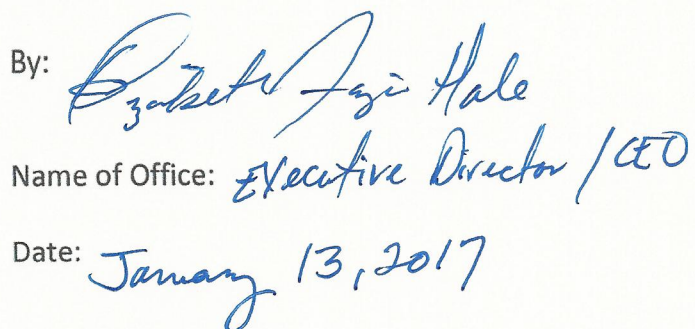 By: Elizabeth Fazio Hale
Name of Office: Executive Director / CEO
Date: January 13, 2017